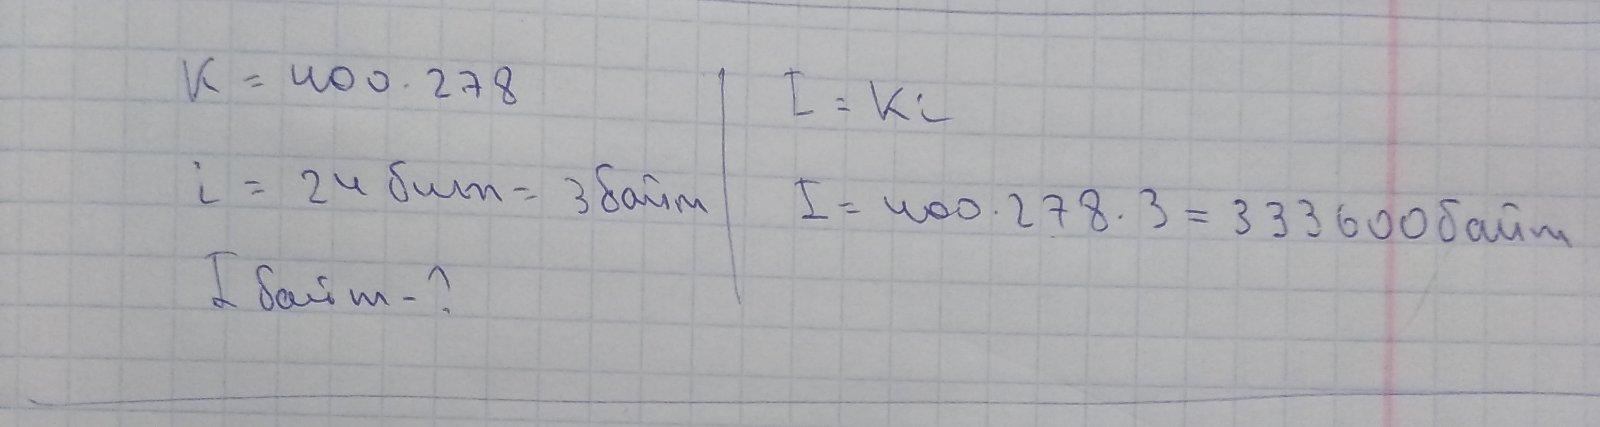 K = 400 · 278
i = 24 бит = 3 байт
I байт - ?
I = Ki
I = 400 · 278 · 3 = 333600 байт